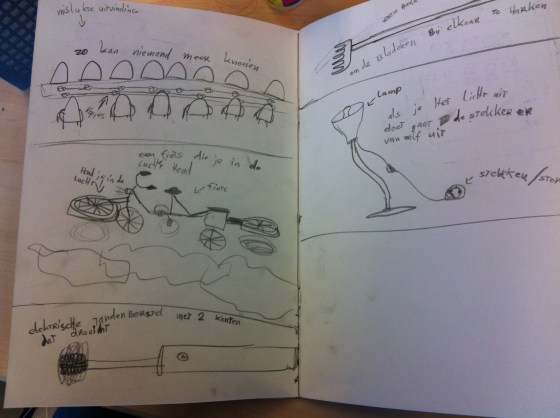 mislukte uitvindingen
zo kan niemand meer knoeien
een fiets die je in de
lucht houd
houd je in de
lucht
fiets
elektrische tandenborstel met 2 kanten
dat draait
om de bladeren bij elkaar te harken
Lamp
als je het licht uit
doet gaat de stekker er
van self uit
stekker